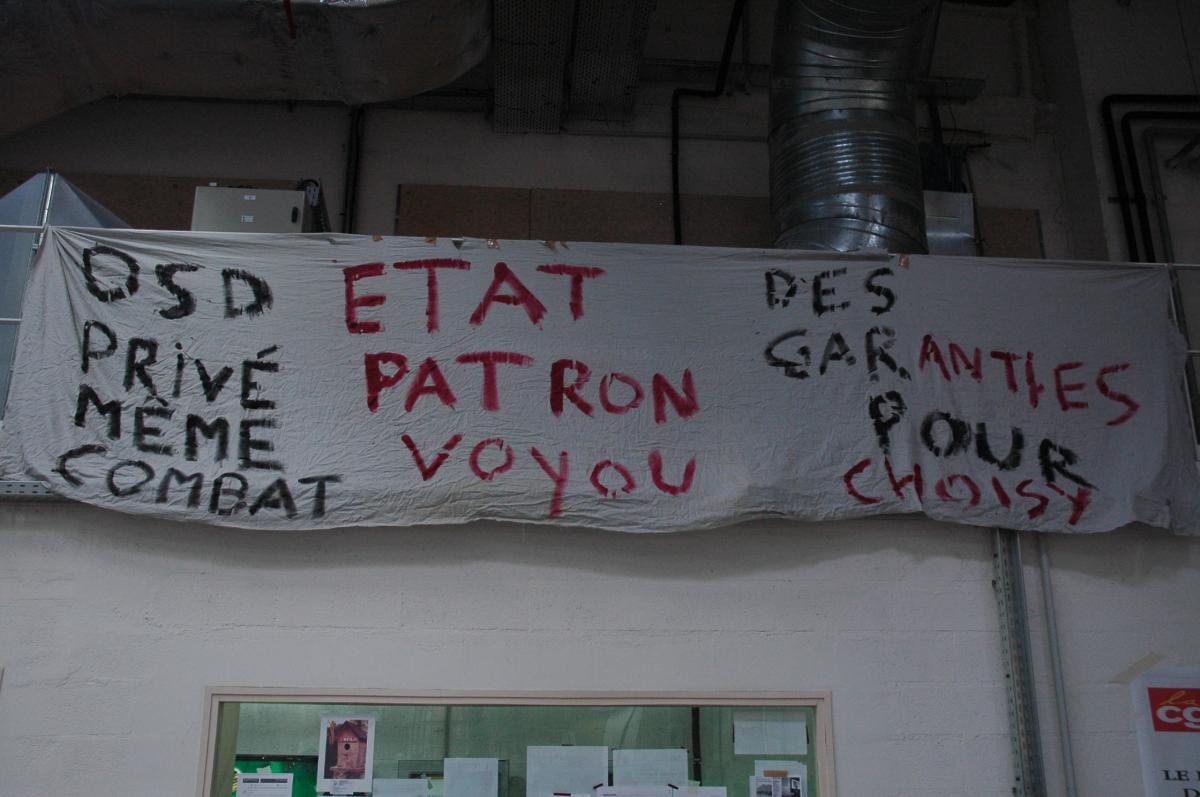 DSD
PRiVÉ
MÊME
COMBAT
ETAT
PATRON
VOYOU
DES
GARANTIES
POUR
CHOISY
La
CG
LE